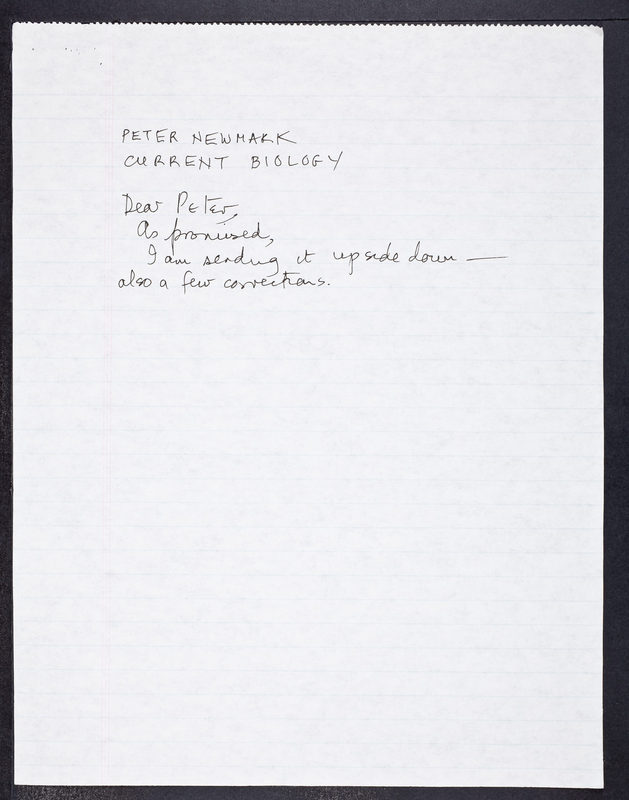 PETER NEWMARK
CURRENT BIOLOGY
Dear Peter,
As promised,
I am sending it upside down —
also a few corrections.